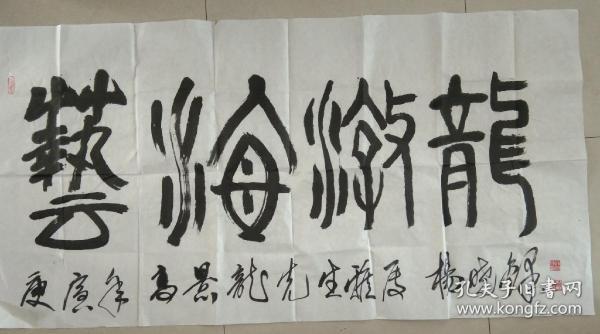 藝海游龍
庚寅年 高景龍先生雅属 楊曉
孔夫子旧书网
www.kongfz.com